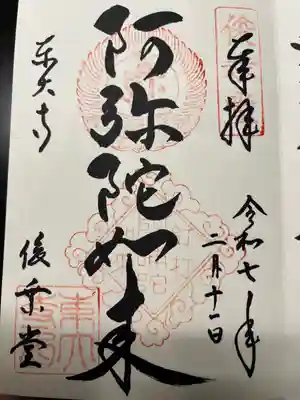 奉拝
令和七年
二月十一日
阿弥陀如来
東大寺
俊乗堂